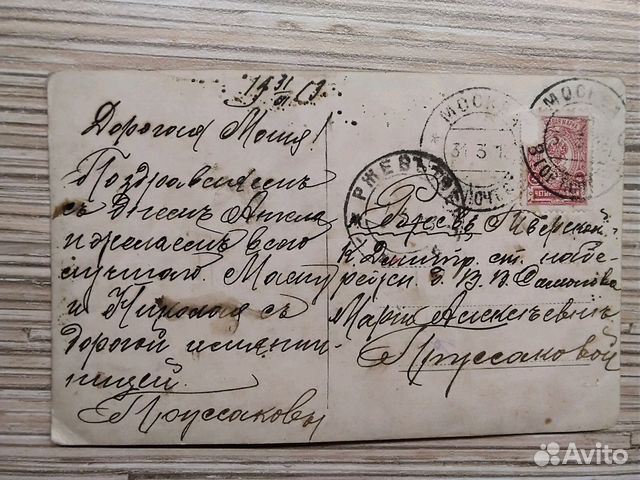 19 31/III 13
Дорогая Маня!
Поздравляем
съ Днемъ Ангела
и желаемъ всего
лучшаго. Машу
и Николая съ
дорогой имянин-
ницей.
Пруссаковы
МОСКВА
31.3.1
МОСКВА
РЖЕВЪ ТВЕР
Ржевъ Тверской
К. Дмитр. ст. набе-
режн. д. В. В.
Марiи Алексѣевнѣ
Пруссаковой
Avito